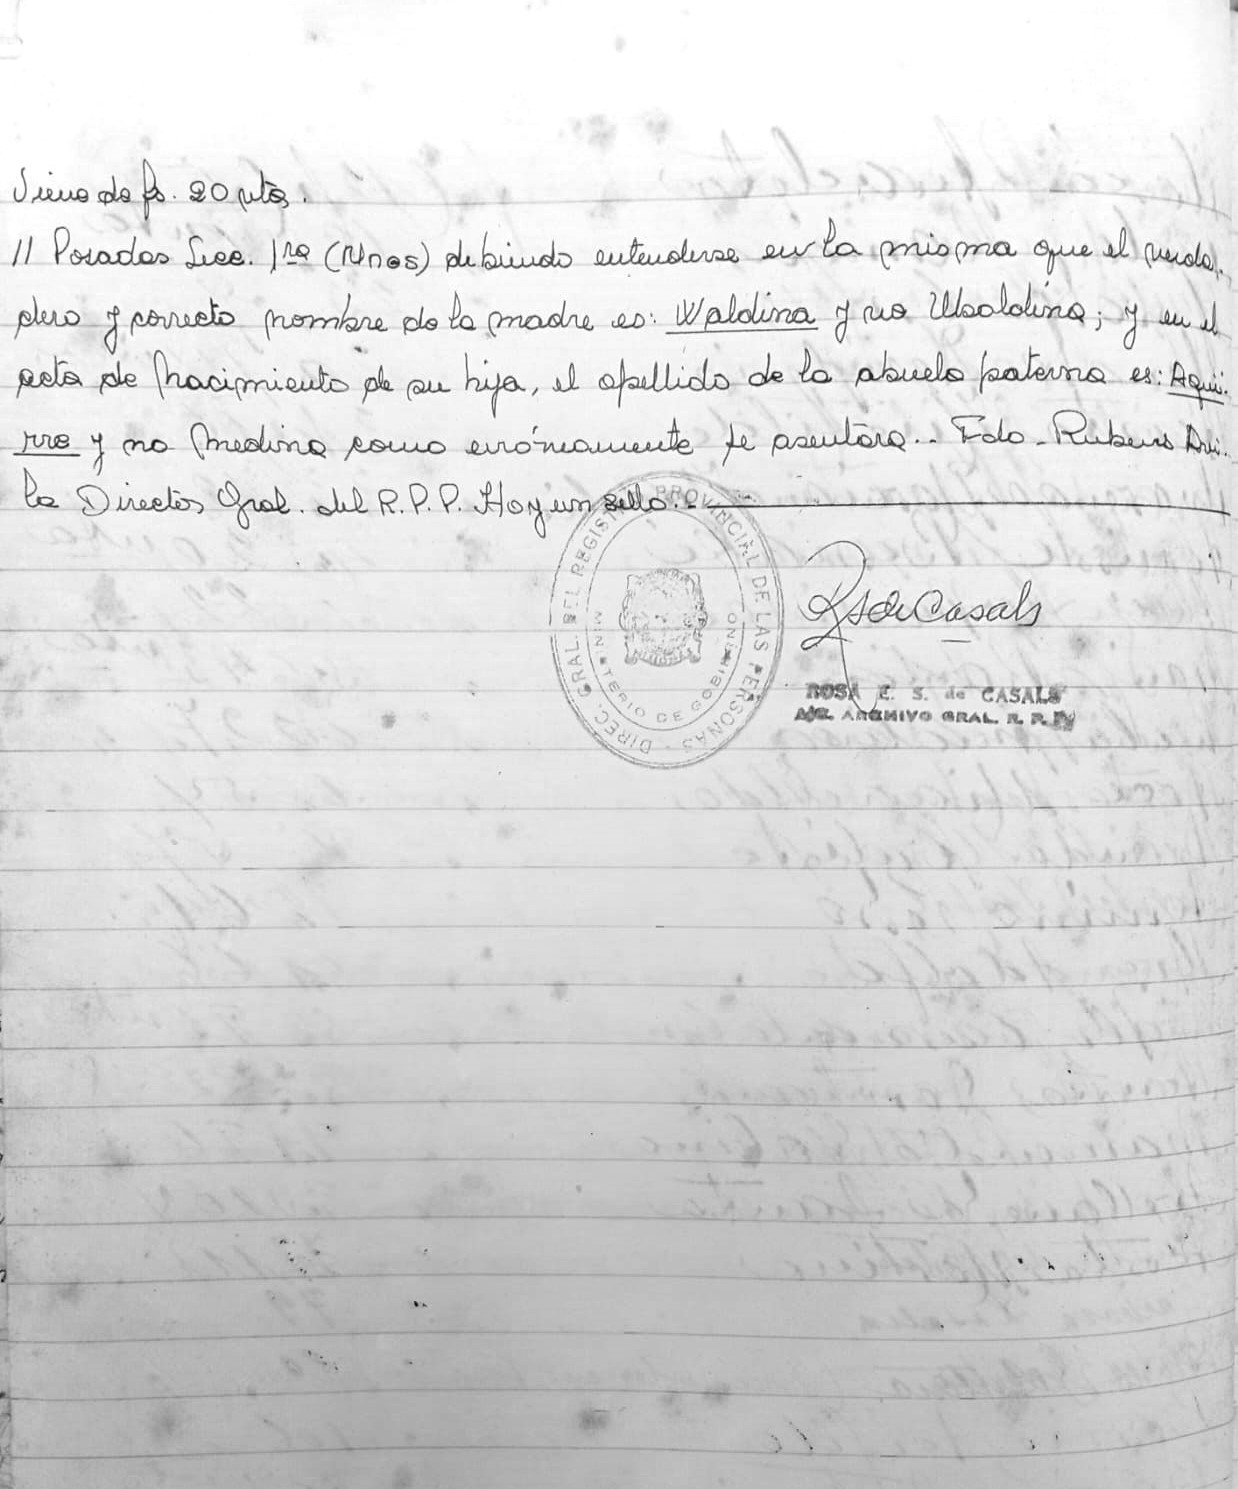 Viene de fs. 20 vta.
// Posadas Secc. 1ra (Mnes) debiendo entenderse en la misma que el verda.
dero y correcto nombre de la madre es: Waldina y no Ubaldina; y en el
acta de nacimiento de su hija, el apellido de la abuela paterna es: Agui.
rre y no Medina como erróneamente se asentara.. Fdo - Rubens Avi.
la Director Gral. del R.P.P. Hay un sello.-
DIREC. GRAL. DEL REGISTRO PROVINCIAL DE LAS PERSONAS
MINISTERIO DE GOBIERNO
RSdeCasals
ROSA E. S. de CASALS
A/C. ARCHIVO GRAL. R. P. P.